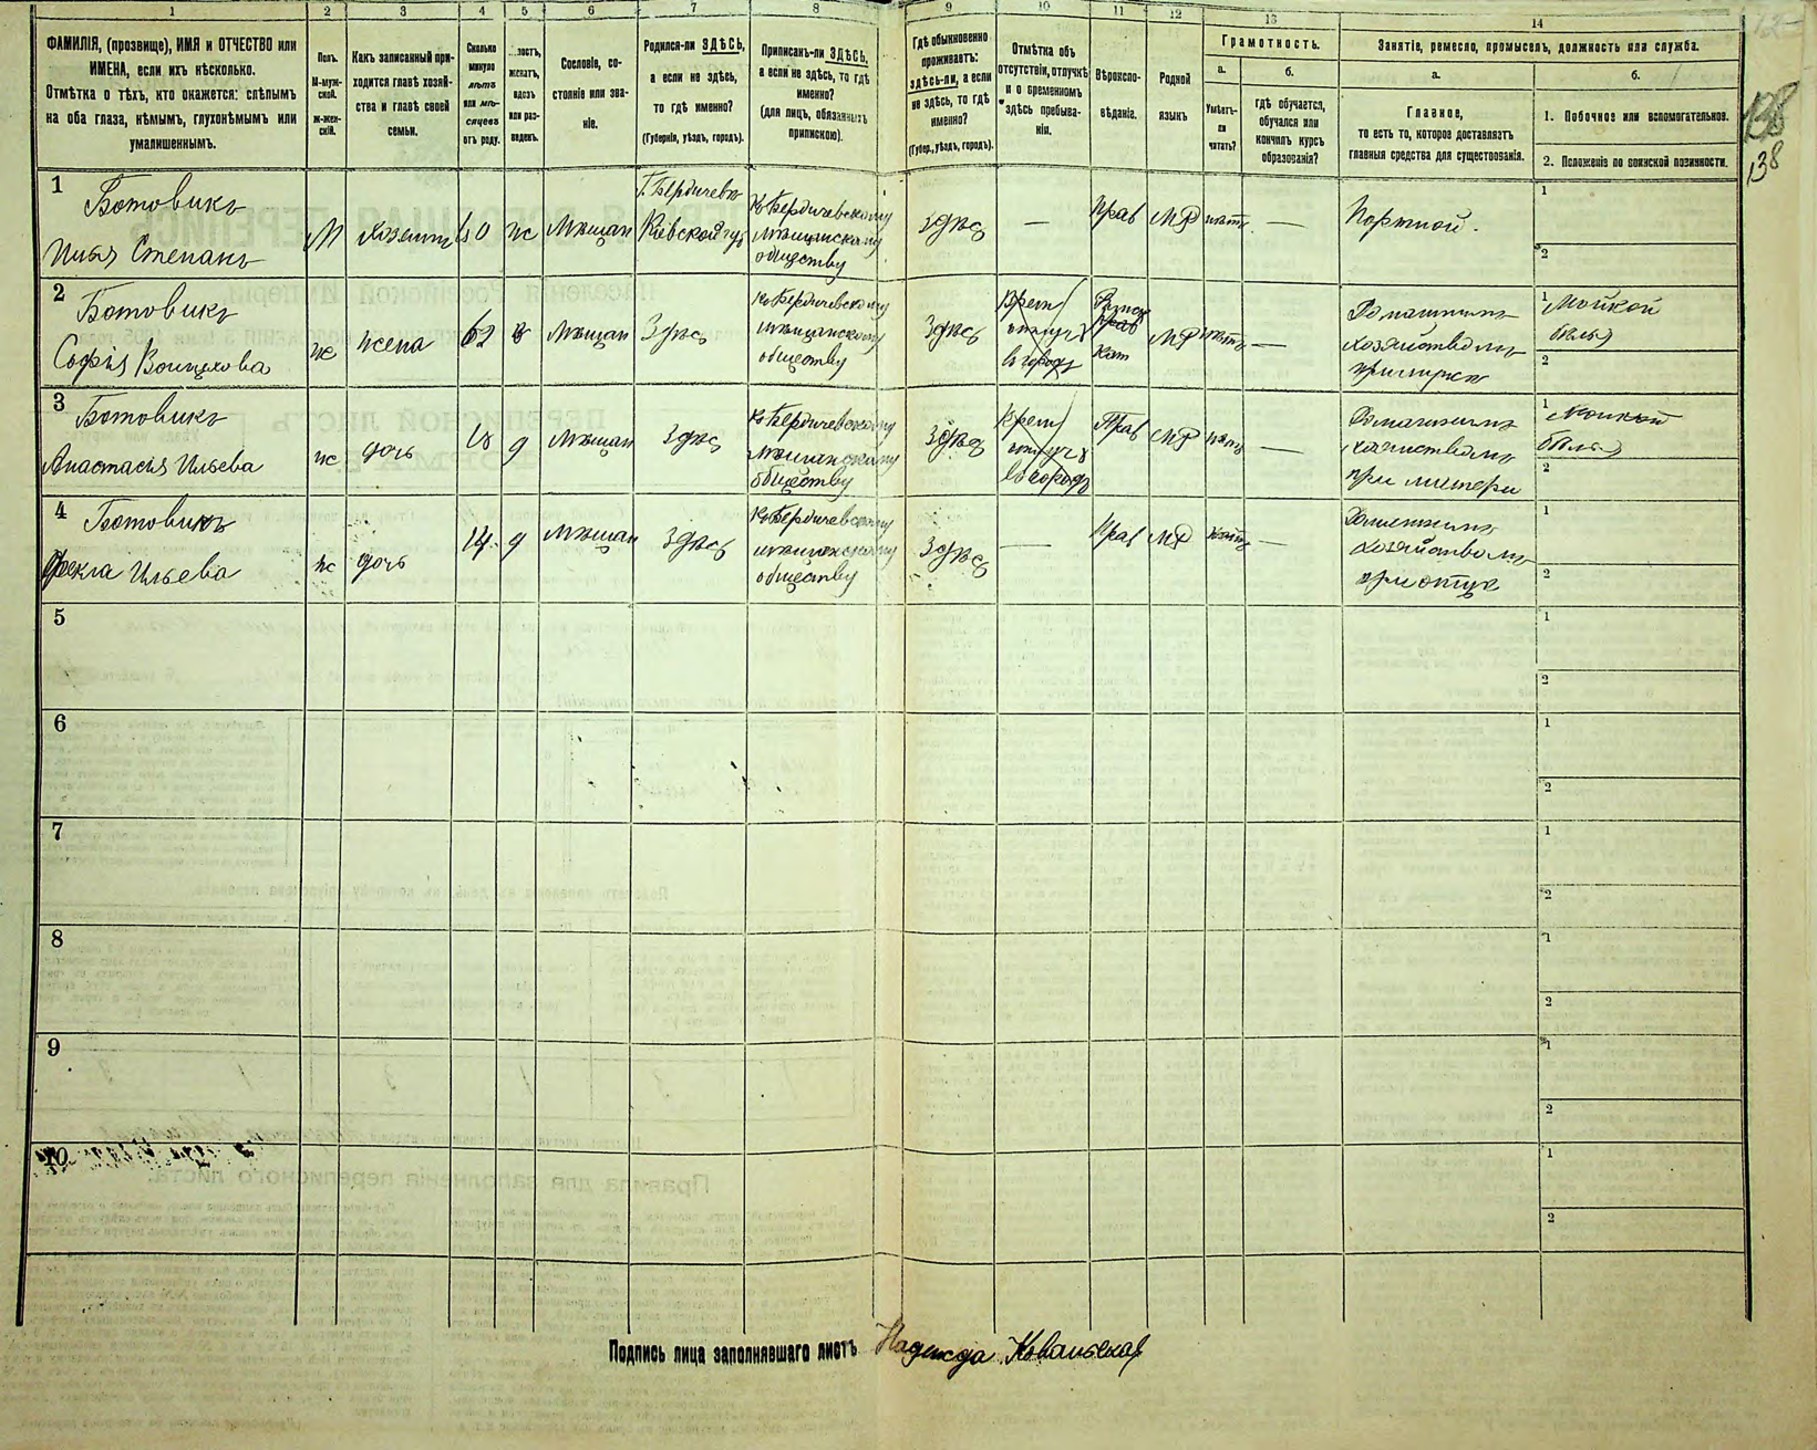 1
2
3
4
5
6
7
8
9
10
11
12
13
14
ФАМИЛІЯ, (прозвище), ИМЯ и ОТЧЕСТВО или
ИМЕНА, если ихъ нѣсколько.
Отмѣтка о тѣхъ, кто окажется: слѣпымъ
на оба глаза, нѣмымъ, глухонѣмымъ или
умалишеннымъ.
Полъ.
М-муж-
ской.
ж-жен-
скій.
Какъ записанный при-
ходится главѣ хозяй-
ства и главѣ своей
семьи.
Сколько
минуло
лѣтъ
или мѣ-
сяцевъ
отъ роду.
лостъ,
женатъ,
вдовъ
или раз-
веденъ.
Сословіе, со-
стояніе или зва-
ніе.
Родился-ли ЗДѢСЬ,
а если не здѣсь,
то гдѣ именно?
(Губернія, уѣздъ, городъ).
Приписанъ-ли ЗДѢСЬ,
а если не здѣсь, то гдѣ
именно?
(для лицъ, обязанныхъ
припискою).
Гдѣ обыкновенно
проживаетъ:
здѣсь-ли, а если
не здѣсь, то гдѣ
именно?
(Губер., уѣздъ, городъ).
Отмѣтка объ
отсутствіи, отлучкѣ
и о временномъ
здѣсь пребыва-
ніи.
Вѣроиспо-
вѣданіе.
Родной
языкъ
Грамотность.
а.
Умѣетъ-
ли
читать?
б.
гдѣ обучается,
обучался или
кончилъ курсъ
образованія?
Занятіе, ремесло, промыселъ, должность или служба.
а.
Главное,
то есть то, которое доставляетъ
главныя средства для существованія.
б.
1. Побочное или вспомогательное.
2. Положеніе по воинской повинности.
138
138
1
Ботовикъ
Илья Степанъ
М
хозяинъ
60
ж
Мѣщан
Г. Бердичевъ
Кіевской губ
Къ Бердичевскому
мѣщанскому
обществу
Здѣсь
—
Прав
МР
нѣтъ
—
Портной.
1
2
2
Ботовикъ
Софія Войцехова
ж
жена
62
Мѣщан
Здѣсь
Къ Бердичевскому
мѣщанскому
обществу
Здѣсь
Врем
отлуч
въ городъ
Римск
Прав
Кат
МР
нѣтъ
—
Домашнимъ
хозяйствомъ
при мужѣ
1
Мойкой
бѣлья
2
3
Ботовикъ
Анастасія Ильева
ж
дочь
18
д
Мѣщан
Здѣсь
Къ Бердичевскому
мѣщанскому
обществу
Здѣсь
Врем
отлуч
въ городъ
Прав
МР
нѣтъ
—
Домашнимъ
хозяйствомъ
при матери
1
Мойкой
бѣлья
2
4
Ботовикъ
Фекла Ильева
ж
дочь
14
д
Мѣщан
Здѣсь
Къ Бердичевскому
мѣщанскому
обществу
Здѣсь
—
Прав
МР
нѣтъ
—
Домашнимъ
хозяйствомъ
при отцѣ
1
2
5
1
2
6
1
2
7
1
2
8
1
2
9
1
2
10
1
2
Подпись лица заполнявшаго листъ Надежда Ковальская